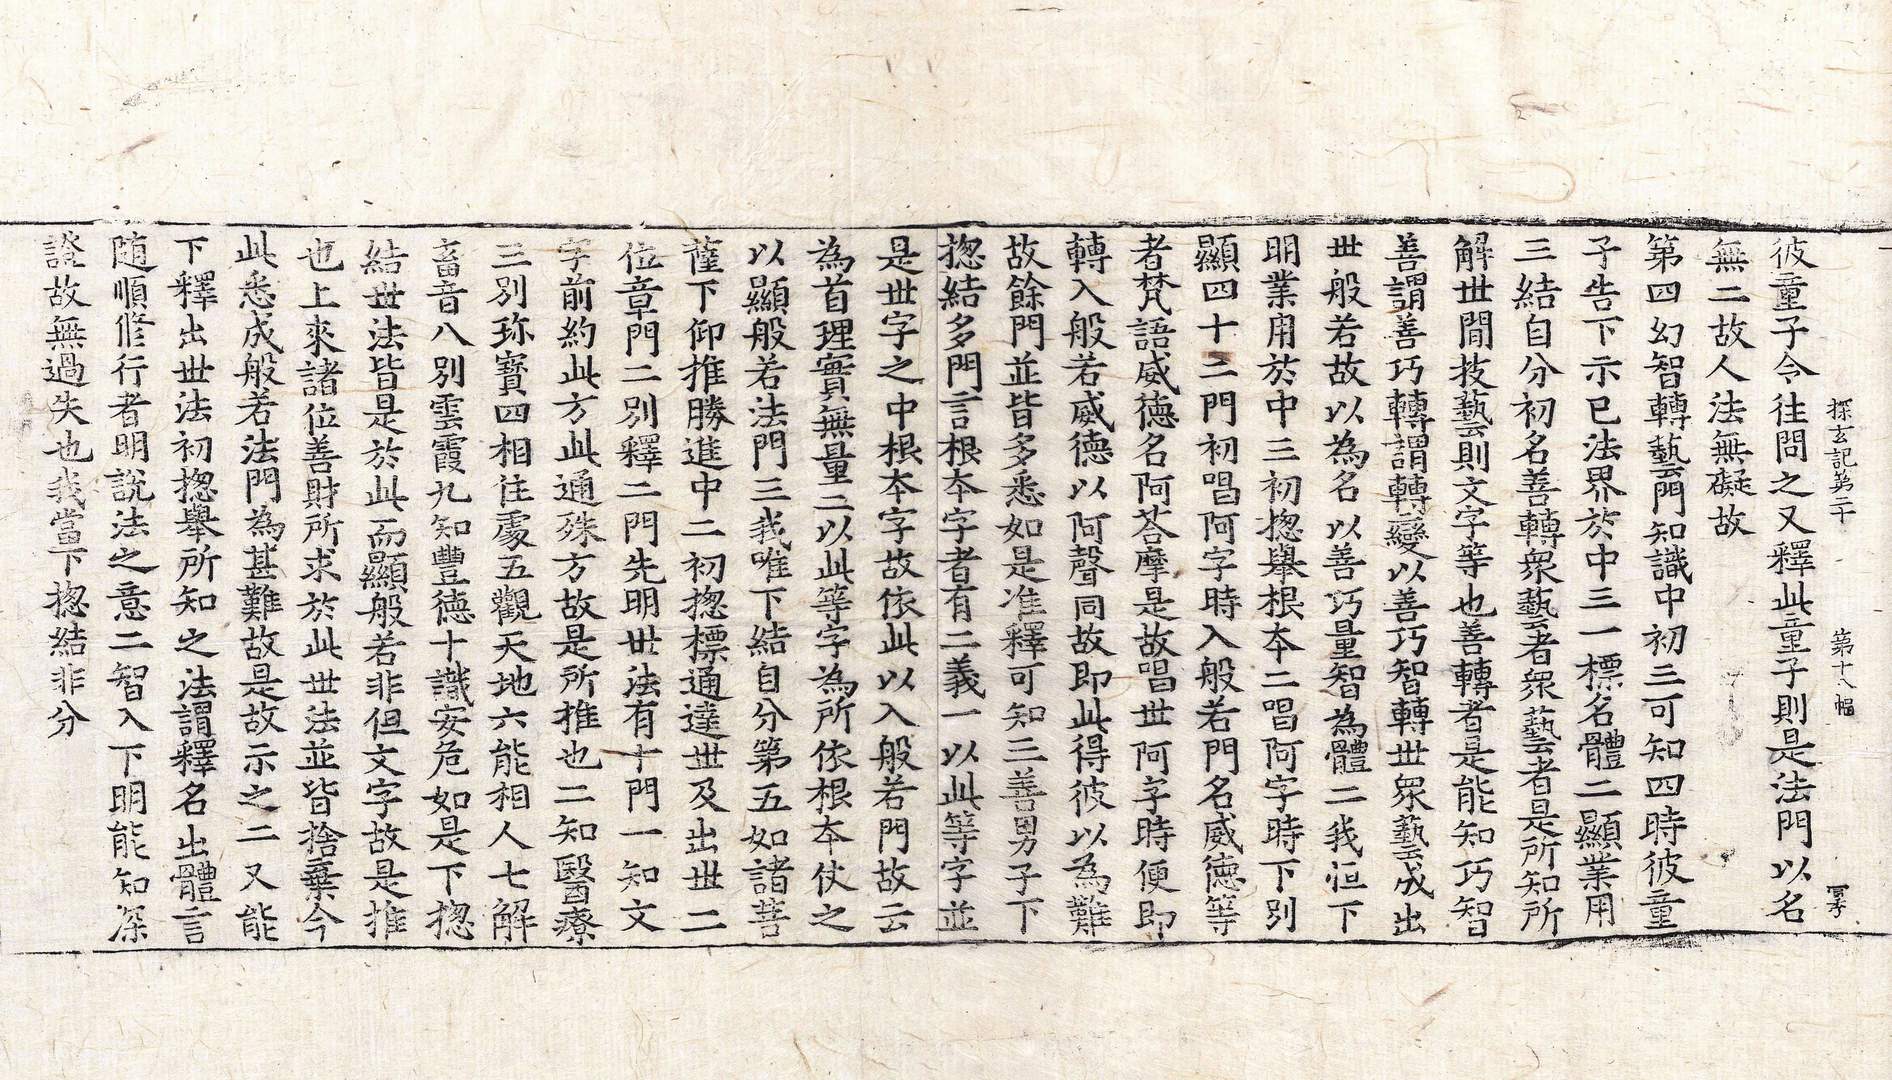 探玄記第二十 第十八幅
彼童子今往問之又釋此童子則是法門以名
無二故人法無礙故
第四幻智轉藝門知識中初三可知四時彼童
子告下示已法界於中三一標名體二顯業用
三結自分初名善轉衆藝者衆藝者是所知所
解世間技藝則文字等也善轉者是能知巧智
善謂善巧轉謂轉變以善巧智轉世衆藝成出
世般若故以為名以善巧量智為體二我恒下
明業用於中三初揔舉根本二唱阿字時下別
顯四十二門初唱阿字時入般若門名威德等
者梵語威德名阿荅摩是故唱世阿字時便即
轉入般若威德以阿聲同故即此得彼以為難
故餘門並皆多悉如是准釋可知三善男子下
揔結多門言根本字者有二義一以此等字並
是世字之中根本字故依此以入般若門故云
為首理實無量二以此等字為所依根本仗之
以顯般若法門三我唯下結自分第五如諸菩
薩下仰推勝進中二初揔標通達世及出世二
位章門二別釋二門先明世法有十門一知文
字前約此方此通殊方故是所推也二知醫療
三別珎寶四相住處五觀天地六能相人七解
畜音八別雲霞九知豐德十識安危如是下揔
結世法皆是於此而顯般若非但文字故是推
也上來諸位善財所求於此世法並皆捨棄今
此悉成般若法門為甚難故是故示之二又能
下釋出世法初揔舉所知之法謂釋名出體言
随順修行者明說法之意二智入下明能知深
證故無過失也我當下揔結非分